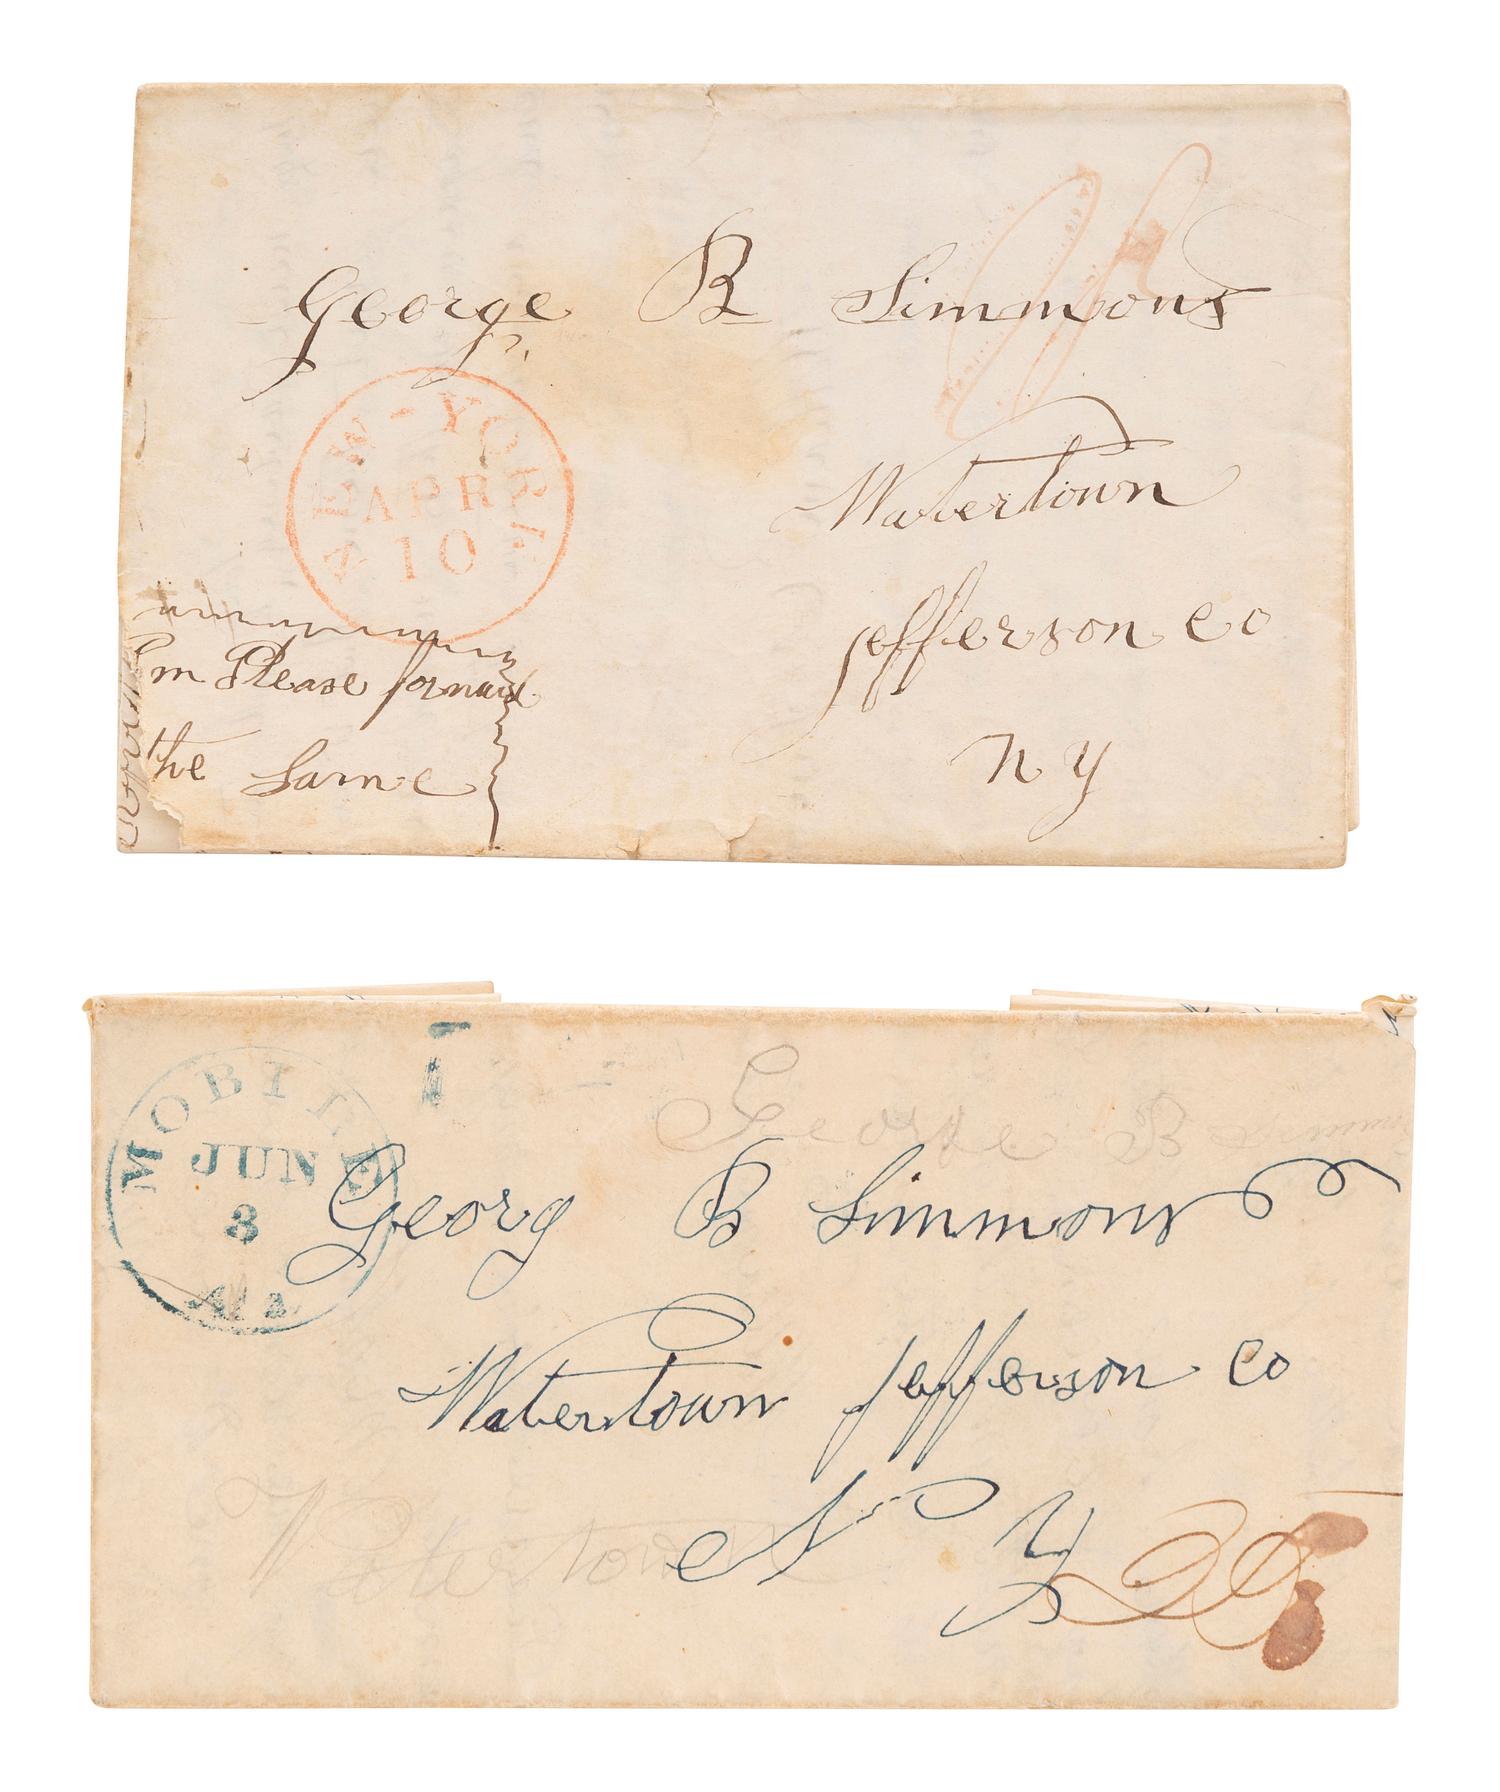 George B Simmons
NEW-YORK
APR
10
Watertown
Jefferson Co
N Y
Pm Please forward
the Same
MOBILE
JUN
3
Ala
George B
Georg B Simmons
Watertown Jefferson Co
N Y
Watertown
25